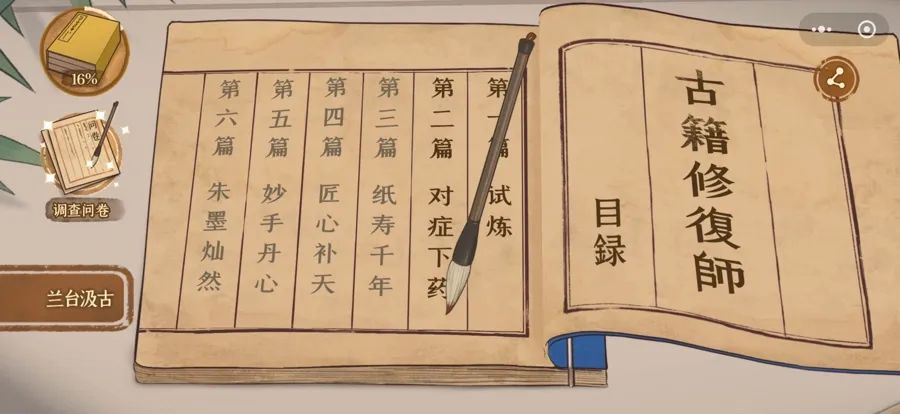 古籍修復師
目錄
第一篇 试炼
第二篇 对症下药
第三篇 纸寿千年
第四篇 匠心补天
第五篇 妙手丹心
第六篇 朱墨灿然
16%
问卷
调查问卷
兰台汲古